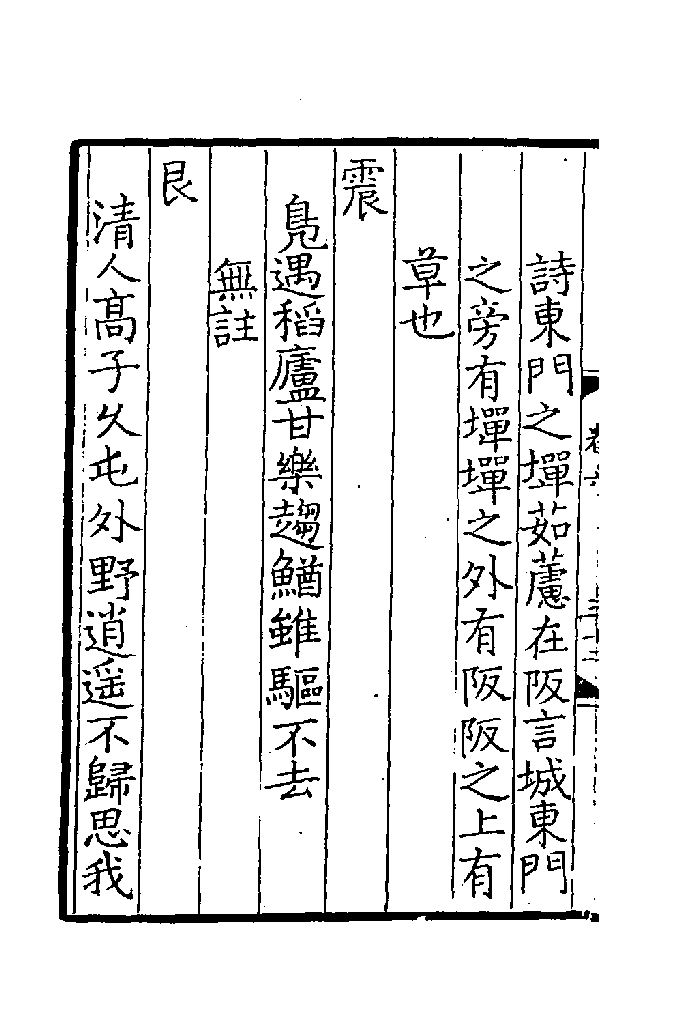 詩東門之墠茹藘在阪言城東門
之旁有墠墠之外有阪阪之上有
草也
震
鳧遇稻廬甘樂趨鰌雖驅不去
無註
艮
清人高子久屯外野逍遙不歸思我